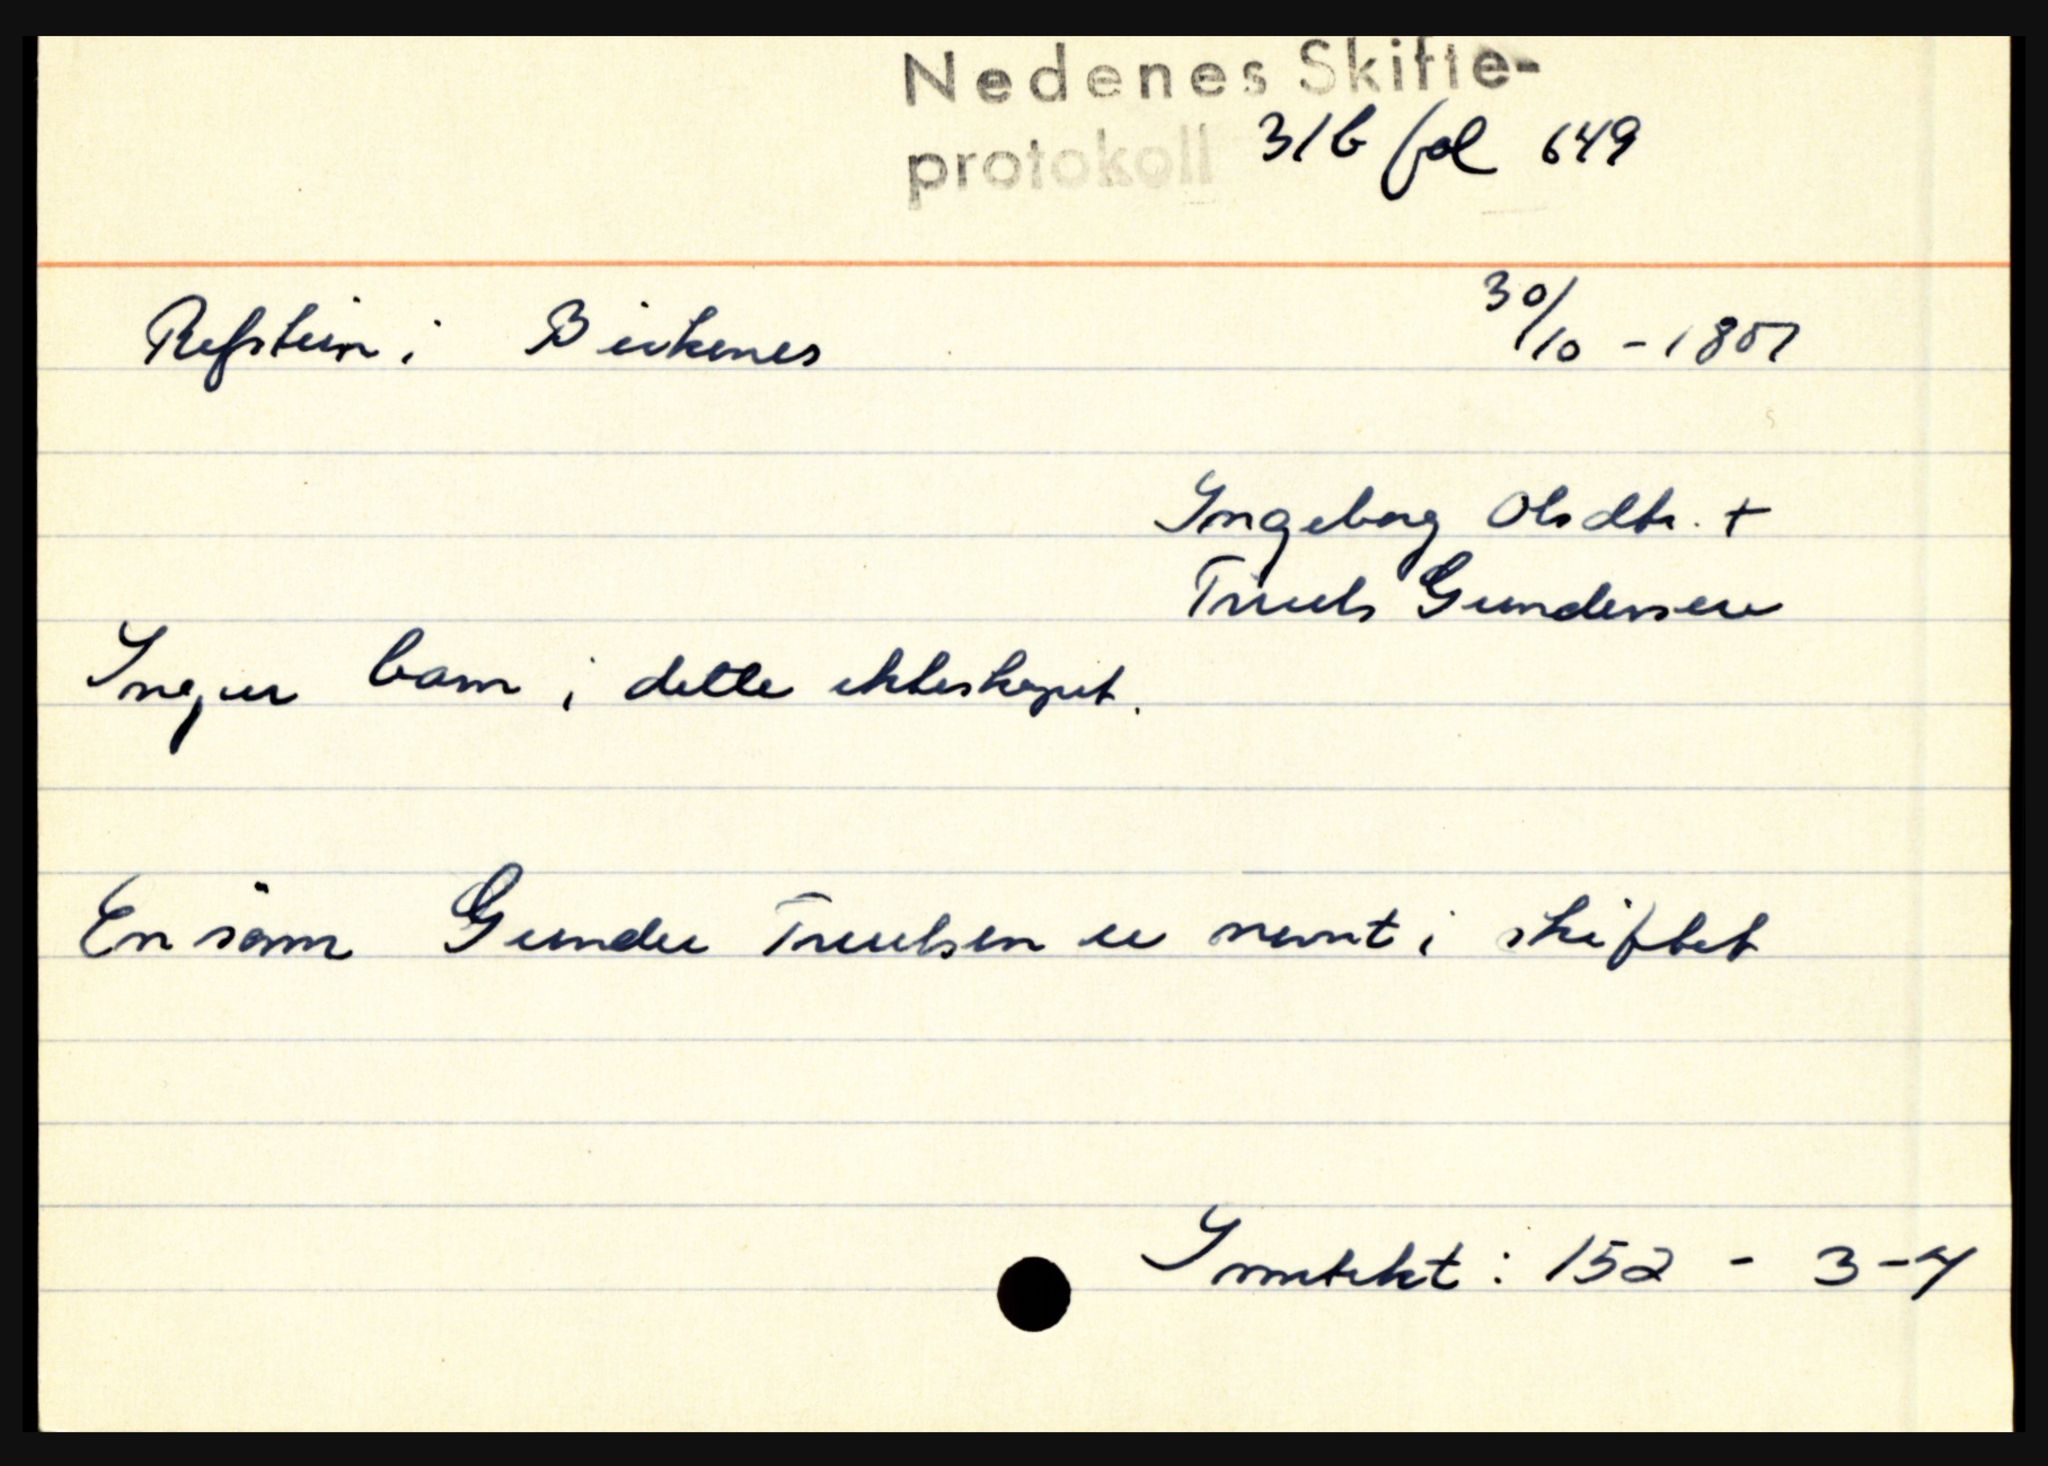 Nedenes Skifte-
protokoll 31b fol 649
Refstein i Birkenes 30/10 - 1801
Ingeborg Olsdtr. +
Truels Gundersen
Ingen barn i dette ekteskapet.
En sönn Gunder Truelsen er nevnt i skiftet
Inntekt: 152 - 3-4